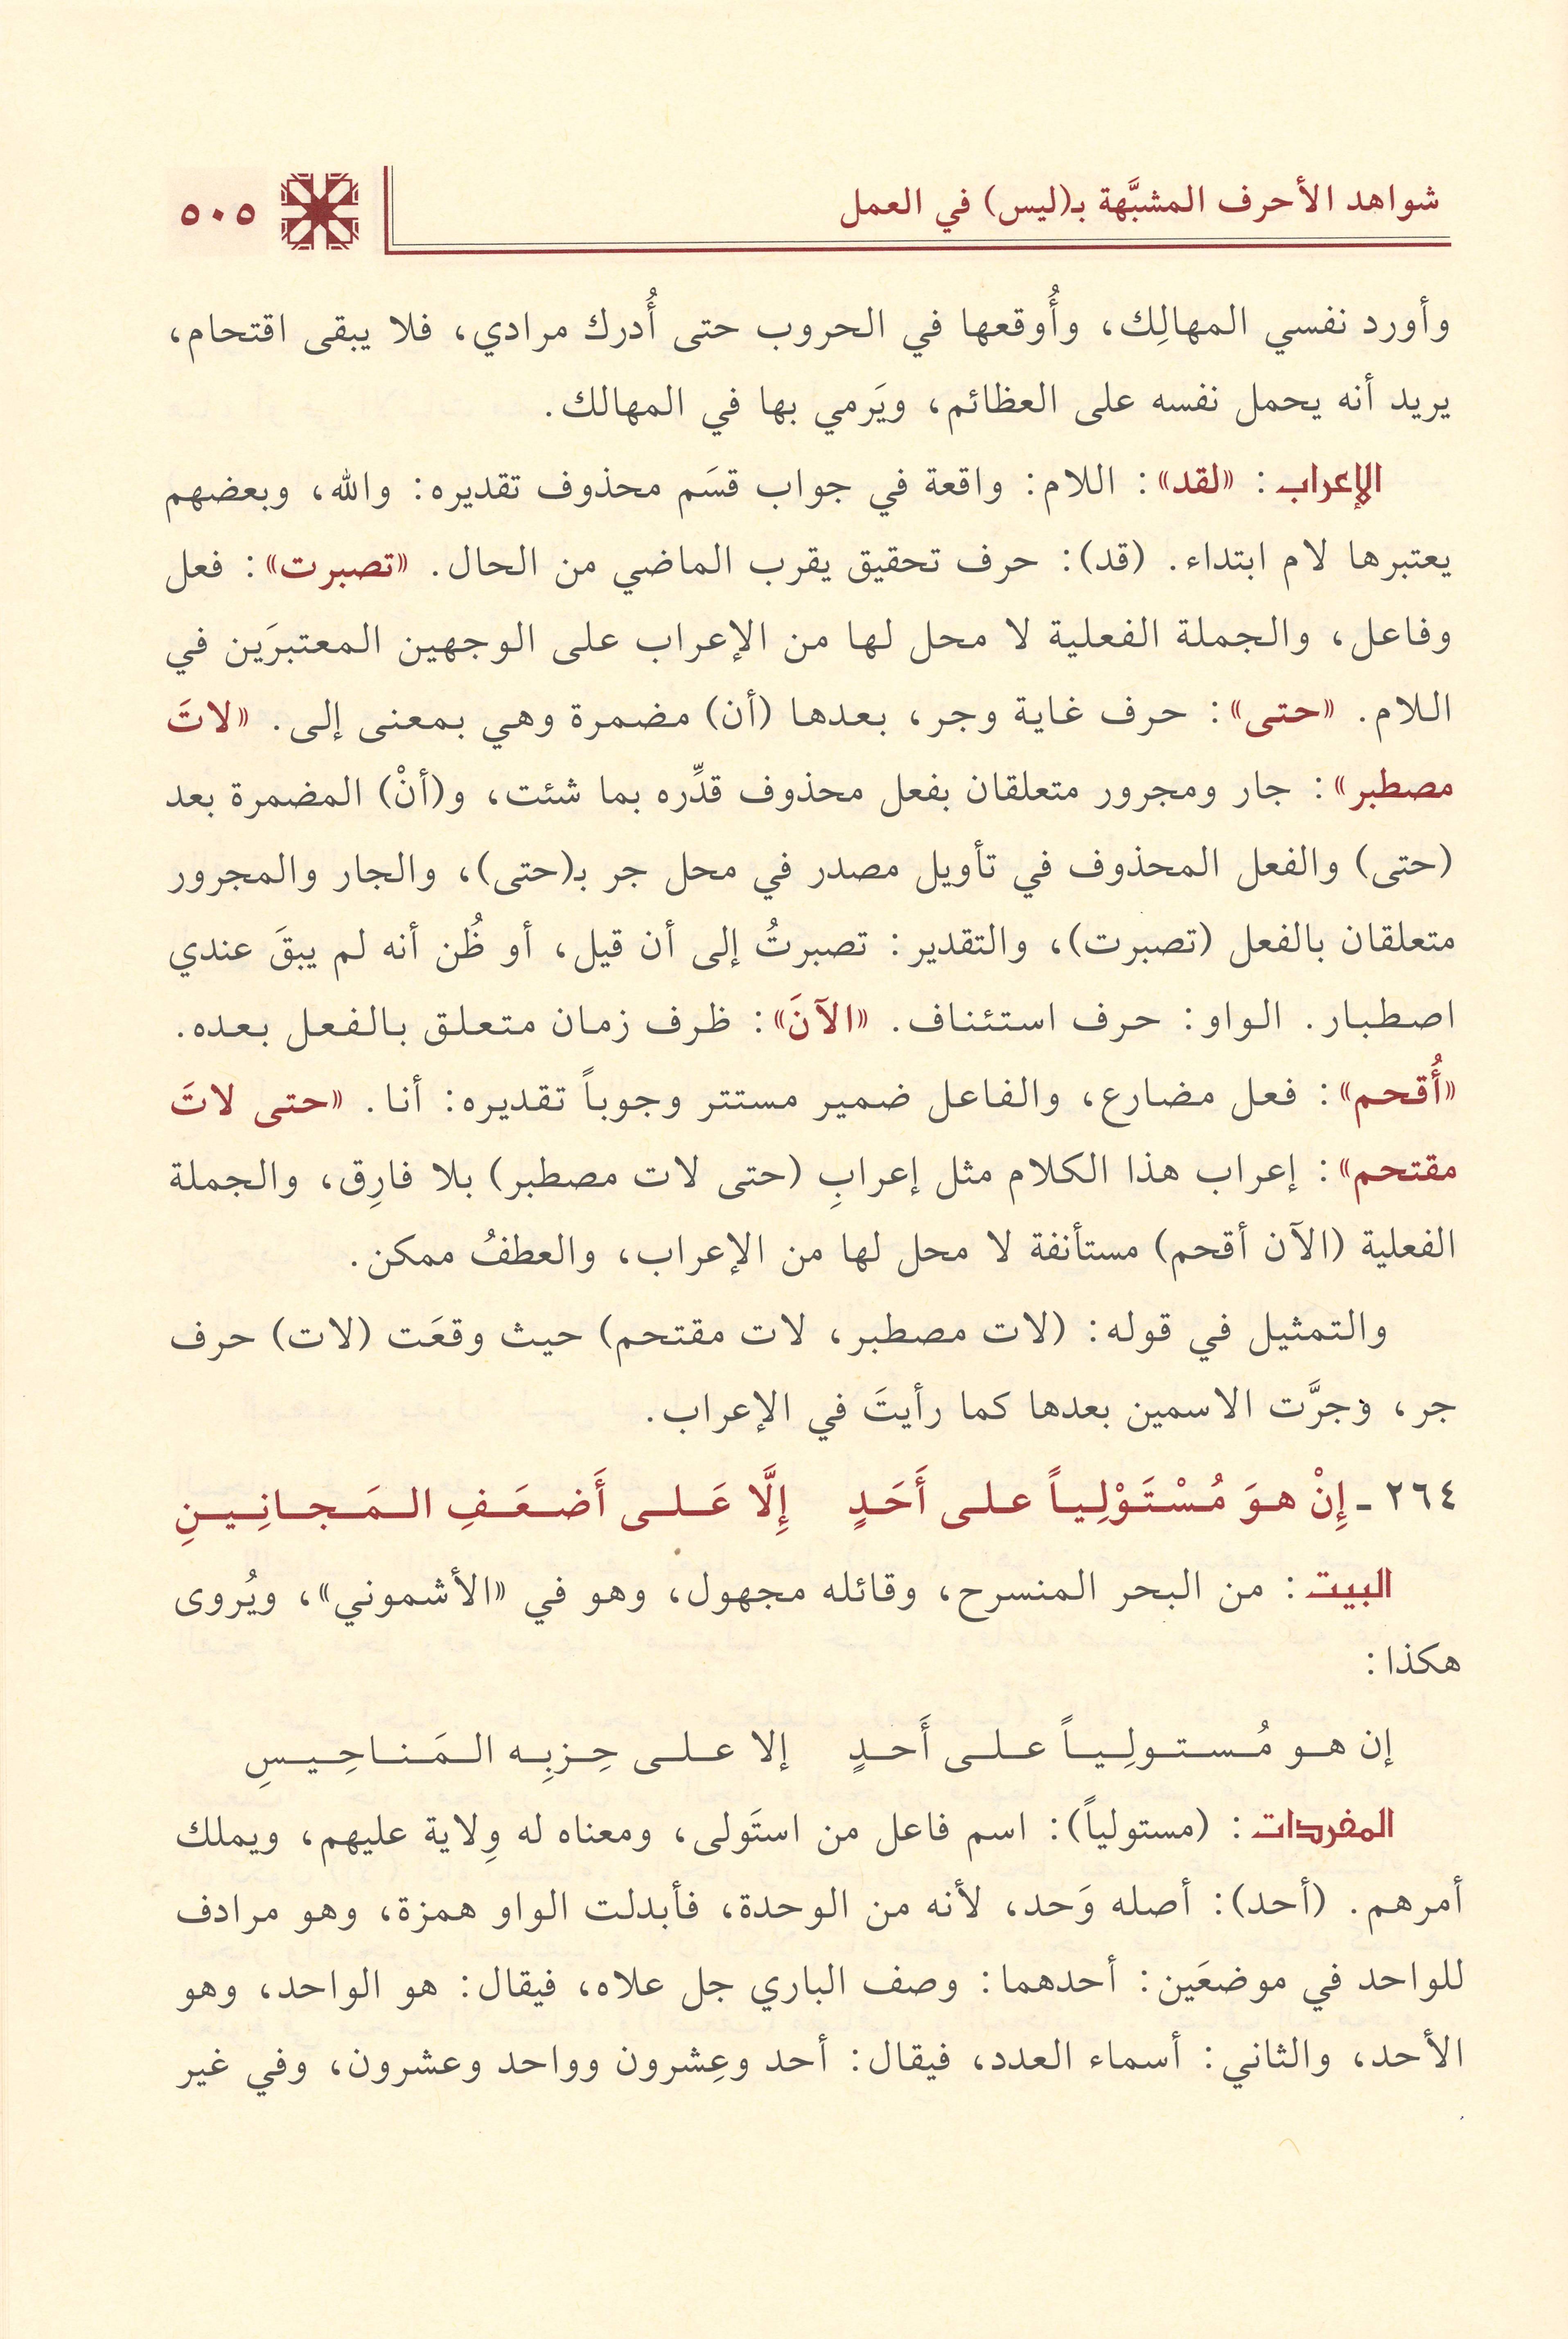 شواهد الأحرف المشبَّهة بـ(ليس) في العمل
٥٠٥
وأورد نفسي المهالِك، وأُوقعها في الحروب حتى أُدرك مرادي، فلا يبقى اقتحام،
يريد أنه يحمل نفسه على العظائم، ويَرمي بها في المهالك.
الإعراب: «لقد»: اللام: واقعة في جواب قسَم محذوف تقديره: والله، وبعضهم
يعتبرها لام ابتداء. (قد): حرف تحقيق يقرب الماضي من الحال. «تصبرت»: فعل
وفاعل، والجملة الفعلية لا محل لها من الإعراب على الوجهين المعتبرَين في
اللام. «حتى»: حرف غاية وجر، بعدها (أن) مضمرة وهي بمعنى إلى. «لاتَ
مصطبر»: جار ومجرور متعلقان بفعل محذوف قدِّره بما شئت، و(أنْ) المضمرة بعد
(حتى) والفعل المحذوف في تأويل مصدر في محل جر بـ(حتى)، والجار والمجرور
متعلقان بالفعل (تصبرت)، والتقدير: تصبرتُ إلى أن قيل، أو ظُن أنه لم يبقَ عندي
اصطبار. الواو: حرف استئناف. «الآنَ»: ظرف زمان متعلق بالفعل بعده.
«أُقحم»: فعل مضارع، والفاعل ضمير مستتر وجوباً تقديره: أنا. «حتى لاتَ
مقتحم»: إعراب هذا الكلام مثل إعرابِ (حتى لات مصطبر) بلا فارِق، والجملة
الفعلية (الآن أقحم) مستأنفة لا محل لها من الإعراب، والعطفُ ممكن.
والتمثيل في قوله: (لات مصطبر، لات مقتحم) حيث وقعَت (لات) حرف
جر، وجرَّت الاسمين بعدها كما رأيتَ في الإعراب.
٢٦٤ ـ إِنْ هوَ مُسْتَوْلِياً على أَحَدٍ إِلَّا عَلى أَضعَفِ المَجانِينِ
البيت: من البحر المنسرح، وقائله مجهول، وهو في «الأشموني»، ويُروى
هكذا:
إن هو مُستولِياً على أَحدٍ إلا على حِزبِه المَناحِيسِ
المفردات: (مستولياً): اسم فاعل من استَولى، ومعناه له وِلاية عليهم، ويملك
أمرهم. (أحد): أصله وَحد، لأنه من الوحدة، فأبدلت الواو همزة، وهو مرادف
للواحد في موضعَين: أحدهما: وصف الباري جل علاه، فيقال: هو الواحد، وهو
الأحد، والثاني: أسماء العدد، فيقال: أحد وعِشرون وواحد وعشرون، وفي غير